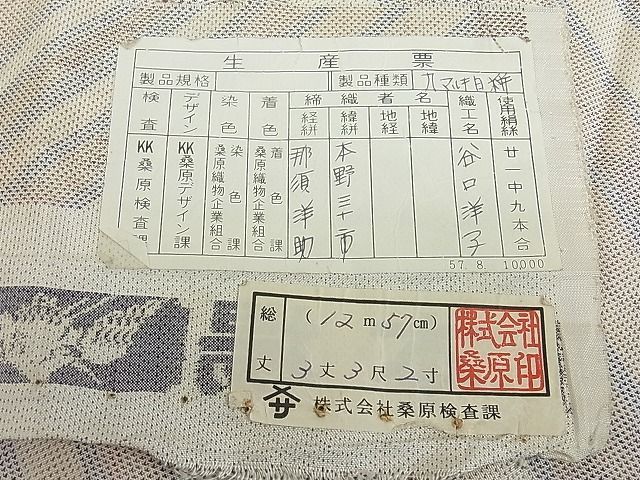 生産票
製品規格 製品種類 九マルキ白絣
検査 デザイン 染色 着色 締経絣 織緯絣 者地経 名地緯 織工名 使用絹絲
KK桑原検査課 KK桑原デザイン課 桑原織物企業組合染色課 桑原織物企業組合着色課 那須洋助 本野三十市 谷口洋子 廿一中九本合
57. 8. 10000
総丈 (12m57cm)
3丈3尺2寸
株式会社桑原印
サ 株式会社桑原検査課